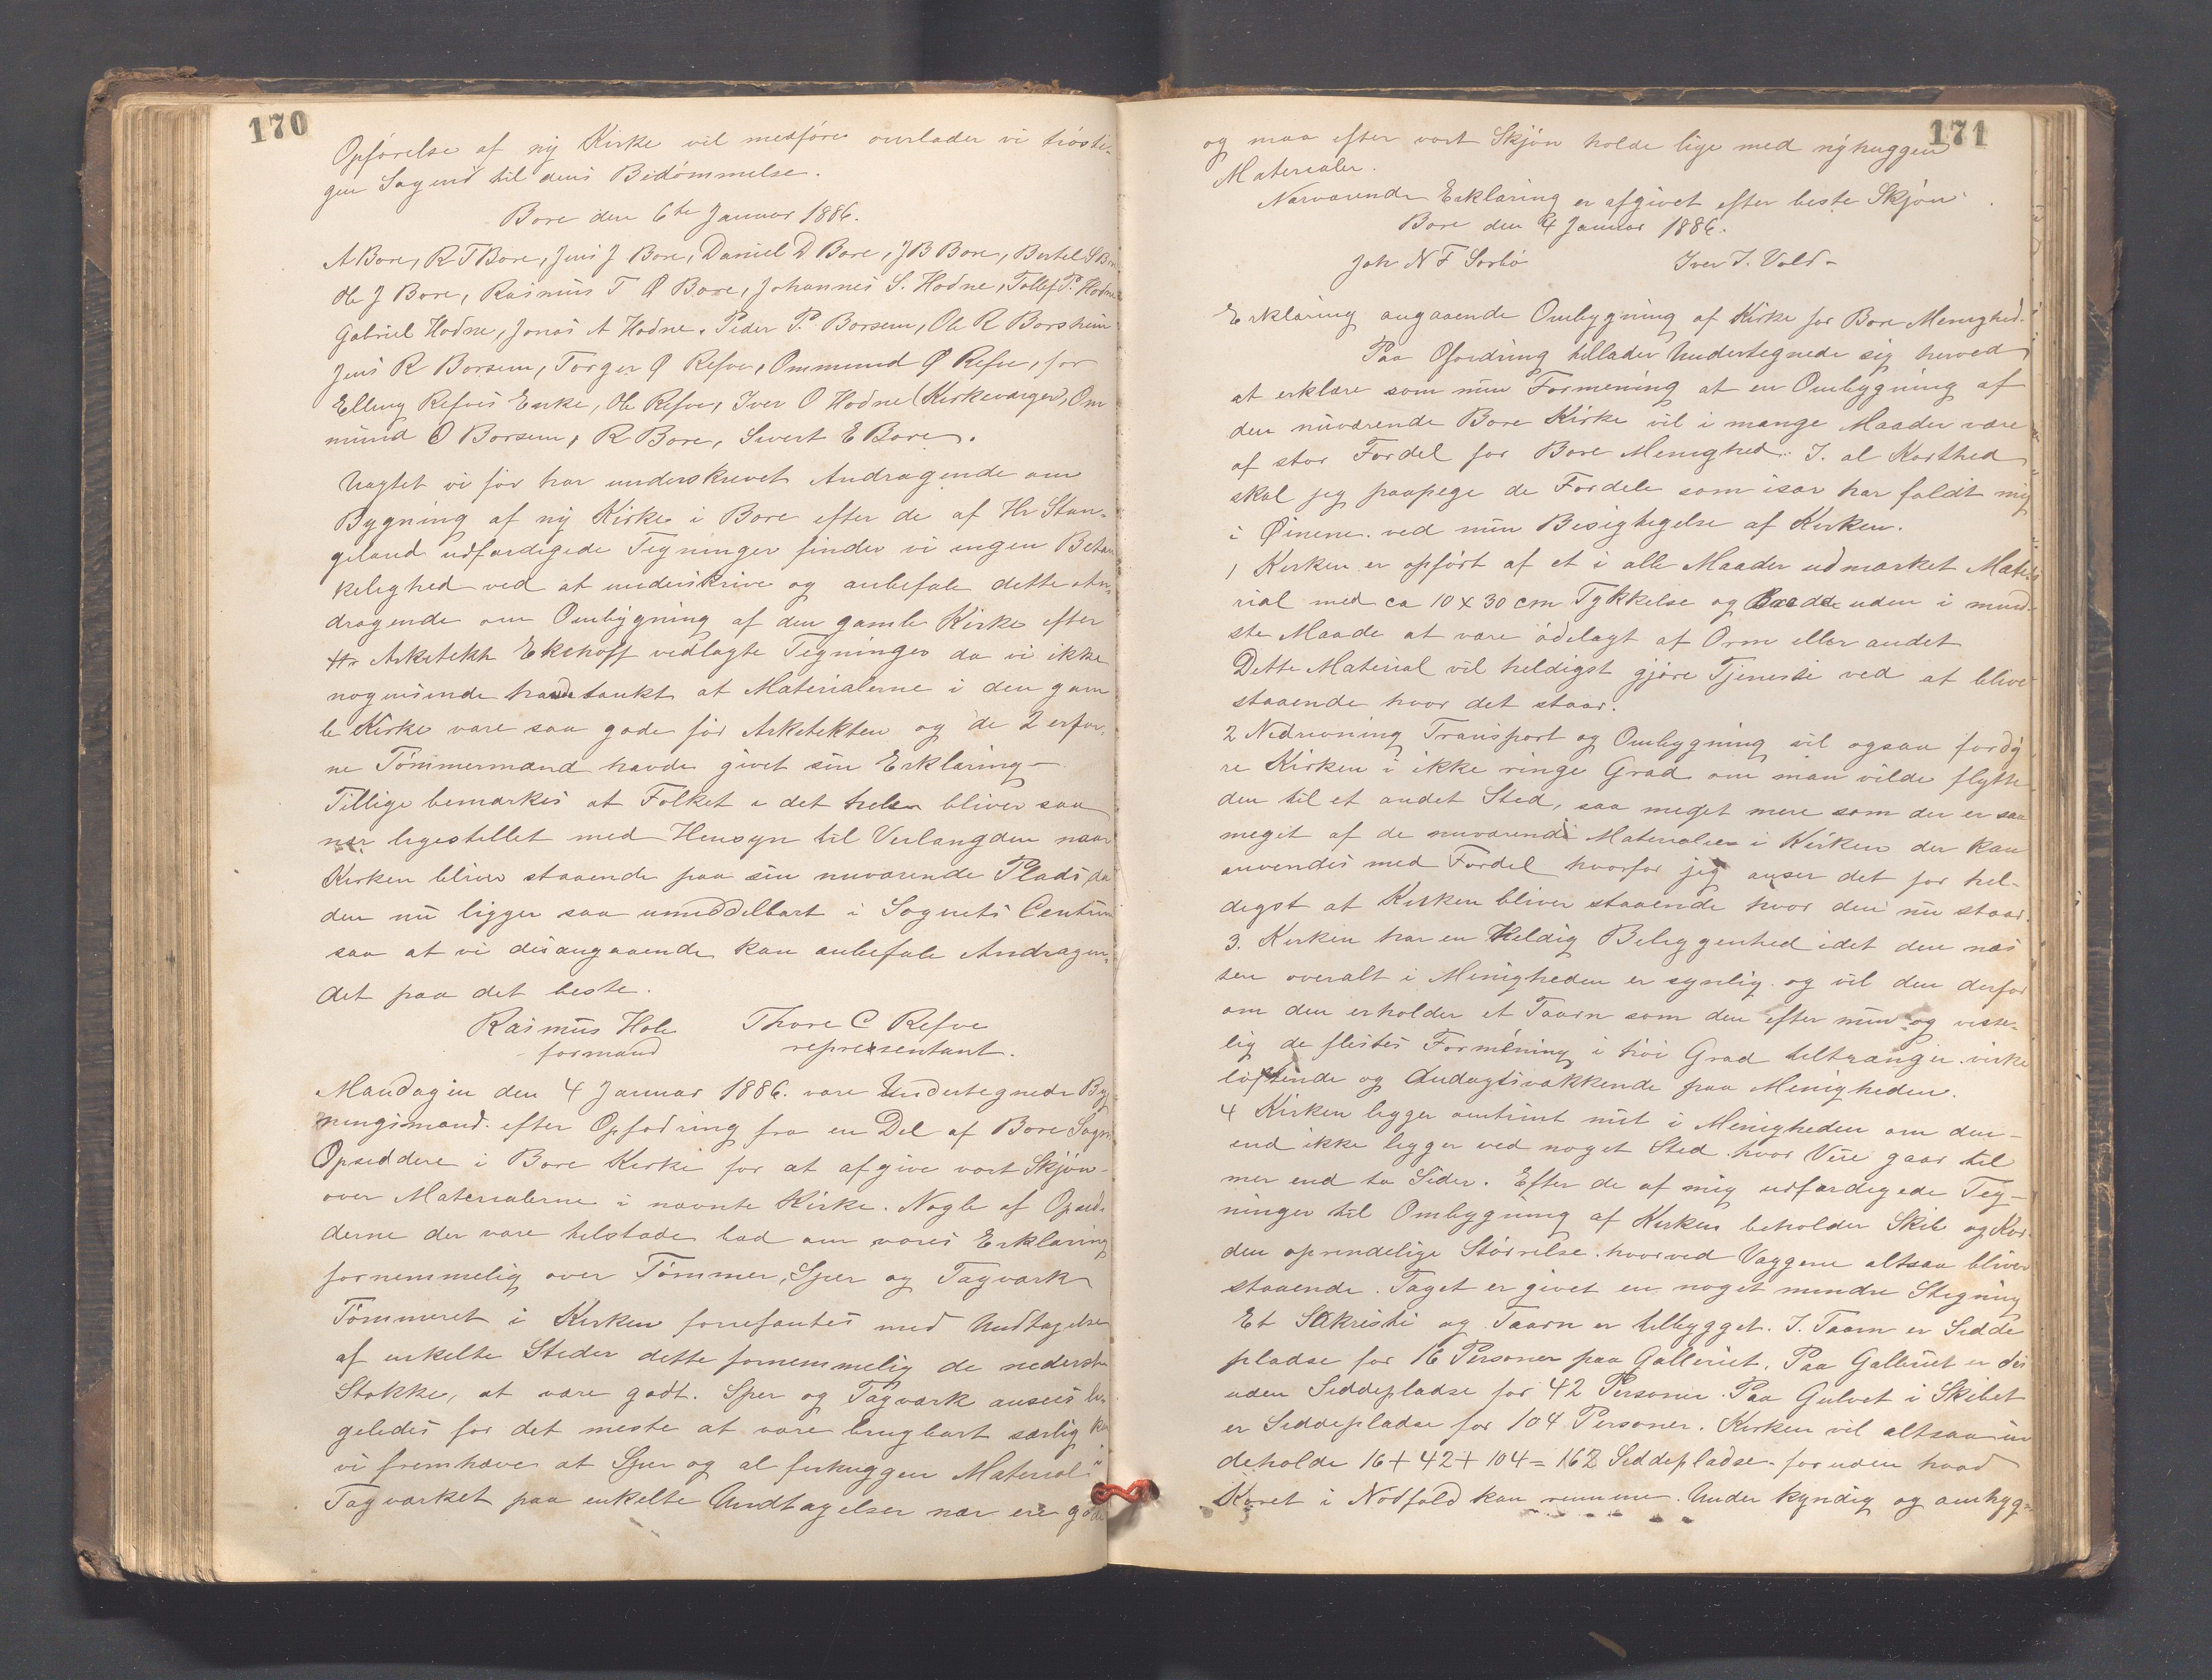 170
Opförelse af ny Kirke vil medføre overlader vi trösti-
gen Sagens til dens Bedömmelse.
Bore den 6te Januar 1886.
A Bore, R T Bore, Jens J Bore, Daniel D Bore, J B Bore, Bertel S Bore
Ole J Bore, Rasmus T Q Bore, Johannes S. Hodne, Tollef P. Hodne
Gabriel Hodne, Jonas A Hodne, Peder P. Borsem, Ole R Borsheim
Jens R Borsem, Torger Q Refve, Ommund Q Refve, for
Elling Refves Enke, Ole Refve, Iver O Hodne (Kirkeværger), Om
mund O Borsem, R Bore, Sivert E Bore.
Uagtet vi før har underskrevet Andragende om
Bygning af ny Kirke i Bore efter de af Hr Stan-
geland udfærdigede Tegninger finder vi ingen Betæn
kelighed ved at underskrive og anbefale dette An-
dragende om Ombygning af den gamle Kirke efter
Hr Arkitekt Eckhoff vedlagte Tegninger da vi ikke
nogensinde havde tænkt at Materialerne i den gam
le Kirke vare saa gode før Arkitekten og de 2 erfar.
ne Tömmermænd havde givet sin Erklæring—
Tillige bemærkes at Folket i det hele bliver saa
nær ligestillet med Hensyn til Veilængden naar
Kirken bliver staaende paa sin nuværende Plads, da
den nu ligger saa umiddelbart i Sognets Centrum
saa at vi desangaaende kan anbefale Andragen-
det paa det beste.
Rasmus Hole Thore C Refve
formand representant.
Mandagen den 4 Januar 1886. vare Undertegnede Byg-
ningsmænd efter Opfodring fra en Del af Bore Sogns
Opsiddere i Bore Kirke for at afgive vort Skjøn-
over Materialerne i nævnte Kirke. Nogle af Opsid-
derne der vare tilstæde bad om vores Erklæring
fornemmelig over Tömmer, Sper og Tagværk
Tömmeret i Kirken forrefantes med Undtagelse
af enkelte Steder dette fornemmelig de nederste
Stokke, at være godt. Sper og Tagværk ansees li-
geledes for det meste at være brugbart særlig kan
vi fremhæve at Sper og al firhuggen Material i
Tagværket paa enkelte Undtagelser nær ere gode
171
og maa efter vort Skjøn holde lige med nyhuggen
Materialer.
Nærværende Erklæring er afgivet efter beste Skjøn.
Bore den 4 Januar 1886.
Joh N F Sorbö Iver I. Vold-
Erklæring angaaende Ombygning af Kirke for Bore Menighed.
Paa Ofordring tillader Undertegnede sig herved
at erklære som min Formening at en Ombygning af
den nuværende Bore Kirke vil i mange Maader være
af stor Fordel for Bore Menighed. I. al Korthed
skal jeg paapege de Fordele som især har faldt mig
i Øinene ved min Besigtigelse af Kirken.
1 Kirken er opfört af et i alle Maader udmærket Mate-
rial med ca 10 x 30 cm Tykkelse og Bredde uden i mind-
ste Maade at være ödelagt af Orm eller andet
Dette Material vil heldigst gjöre Tjeneste ved at blive
staaende hvor det staar.
2 Nedrivning Transport og Ombygning vil ogsaa fordy
re Kirken i ikke ringe Grad om man vilde flytte
den til et andet Sted, saa meget mere som der er saa
meget af de nuværende Materialier i Kirken der kan
anvendes med Fordel hvorfor jeg anser det for hel-
digst at Kirken bliver staaende hvor den nu staar.
3. Kirken har en Heldig Beliggenhed idet den næs
ten overalt i Menigheden er synlig og vil den derfor
om den erholder et Taarn som den efter min og visse-
lig de flestes Formening i höi Grad tiltrænger virke
löftende og Andagtsvækkende paa Menigheden.
4 Kirken ligger omtrent mit i Menigheden om den-
end ikke ligger ved noget Sted hvor Veie gaar til
mer end to Sider. Efter de af mig udfærdigede Teg-
ninger til Ombygning af Kirken beholder Skib og Kor.
den oprendelige Störrelse hvorved Væggene altsaa bliver
staaende. Taget er givet en noget mindre Stigning
Et Sakristi og Taarn er tilbygget. I. Taarn er Sidde
pladse for 16 Personer paa Galleriet. Paa Galleriet er des
uden Siddepladse for 42 Personer. Paa Gulvet i Skibet
er Siddepladse for 104 Personer. Kirken vil altsaa in
deholde 16 + 42 + 104 = 162 Siddepladse foruden hvad
Koret i Nödfald kan rumme. Under kyndig og omhyg-